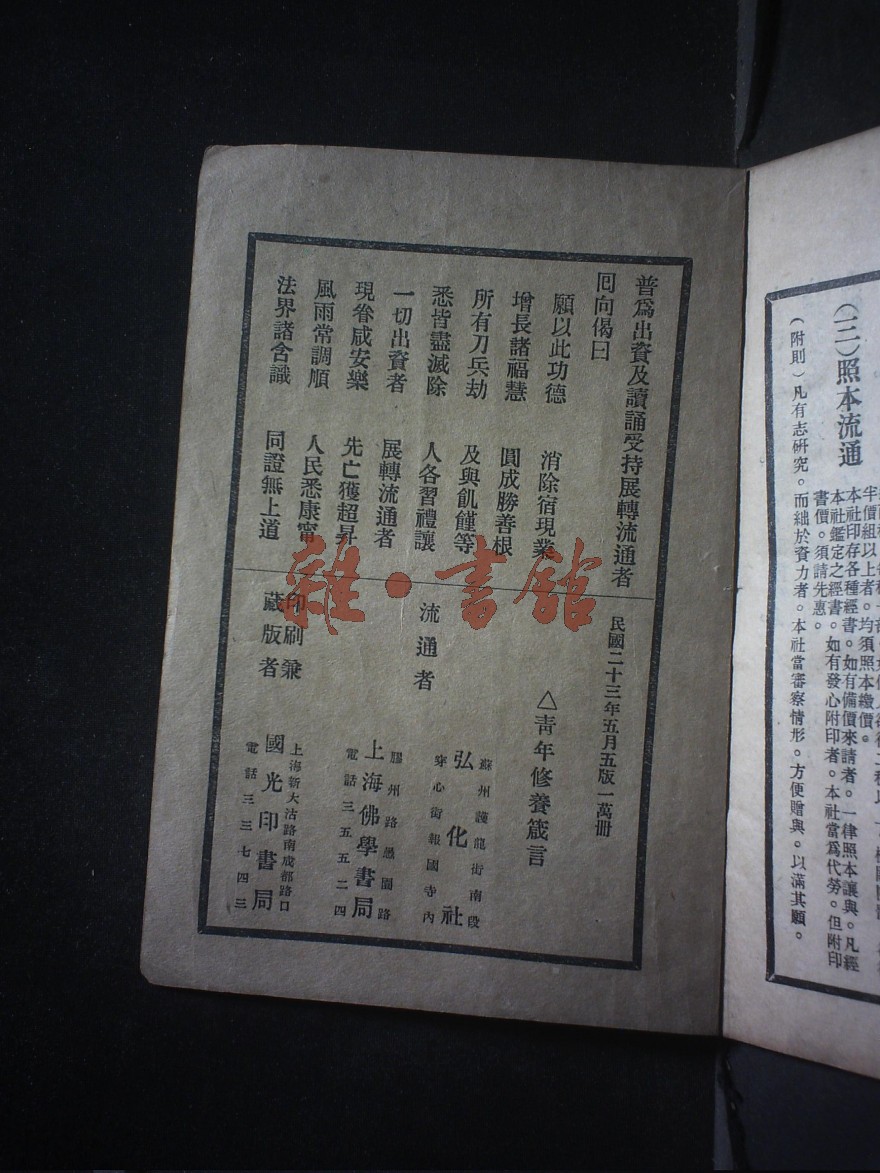 (三)照本流通
半價組以上者。均須照本繳價。
本社印存各種經書。如有備價來請者。一律照本讓與。凡經
本社鑑定之經書。如有發心附印者。本社當爲代勞。但附印
書價。須請先惠。
(附則)凡有志研究。而絀於資力者。本社當審察情形。方便贈與。以滿其願。
普爲出資及讀誦受持展轉流通者
回向偈曰
願以此功德 消除宿現業
增長諸福慧 圓成勝善根
所有刀兵劫 及與飢饉等
悉皆盡滅除 人各習禮讓
一切出資者 展轉流通者
現眷咸安樂 先亡獲超昇
風雨常調順 人民悉康甯
法界諸含識 同證無上道
民國二十三年五月五版一萬冊
△靑年修養箴言
流通者
蘇州護龍街南段
弘化社
穿心街報國寺內
膠州路愚園路
上海佛學書局
電話三五五二四
印刷兼
藏版者
上海新大沽路南成都路口
國光印書局
電話三三七四三
雜·書館